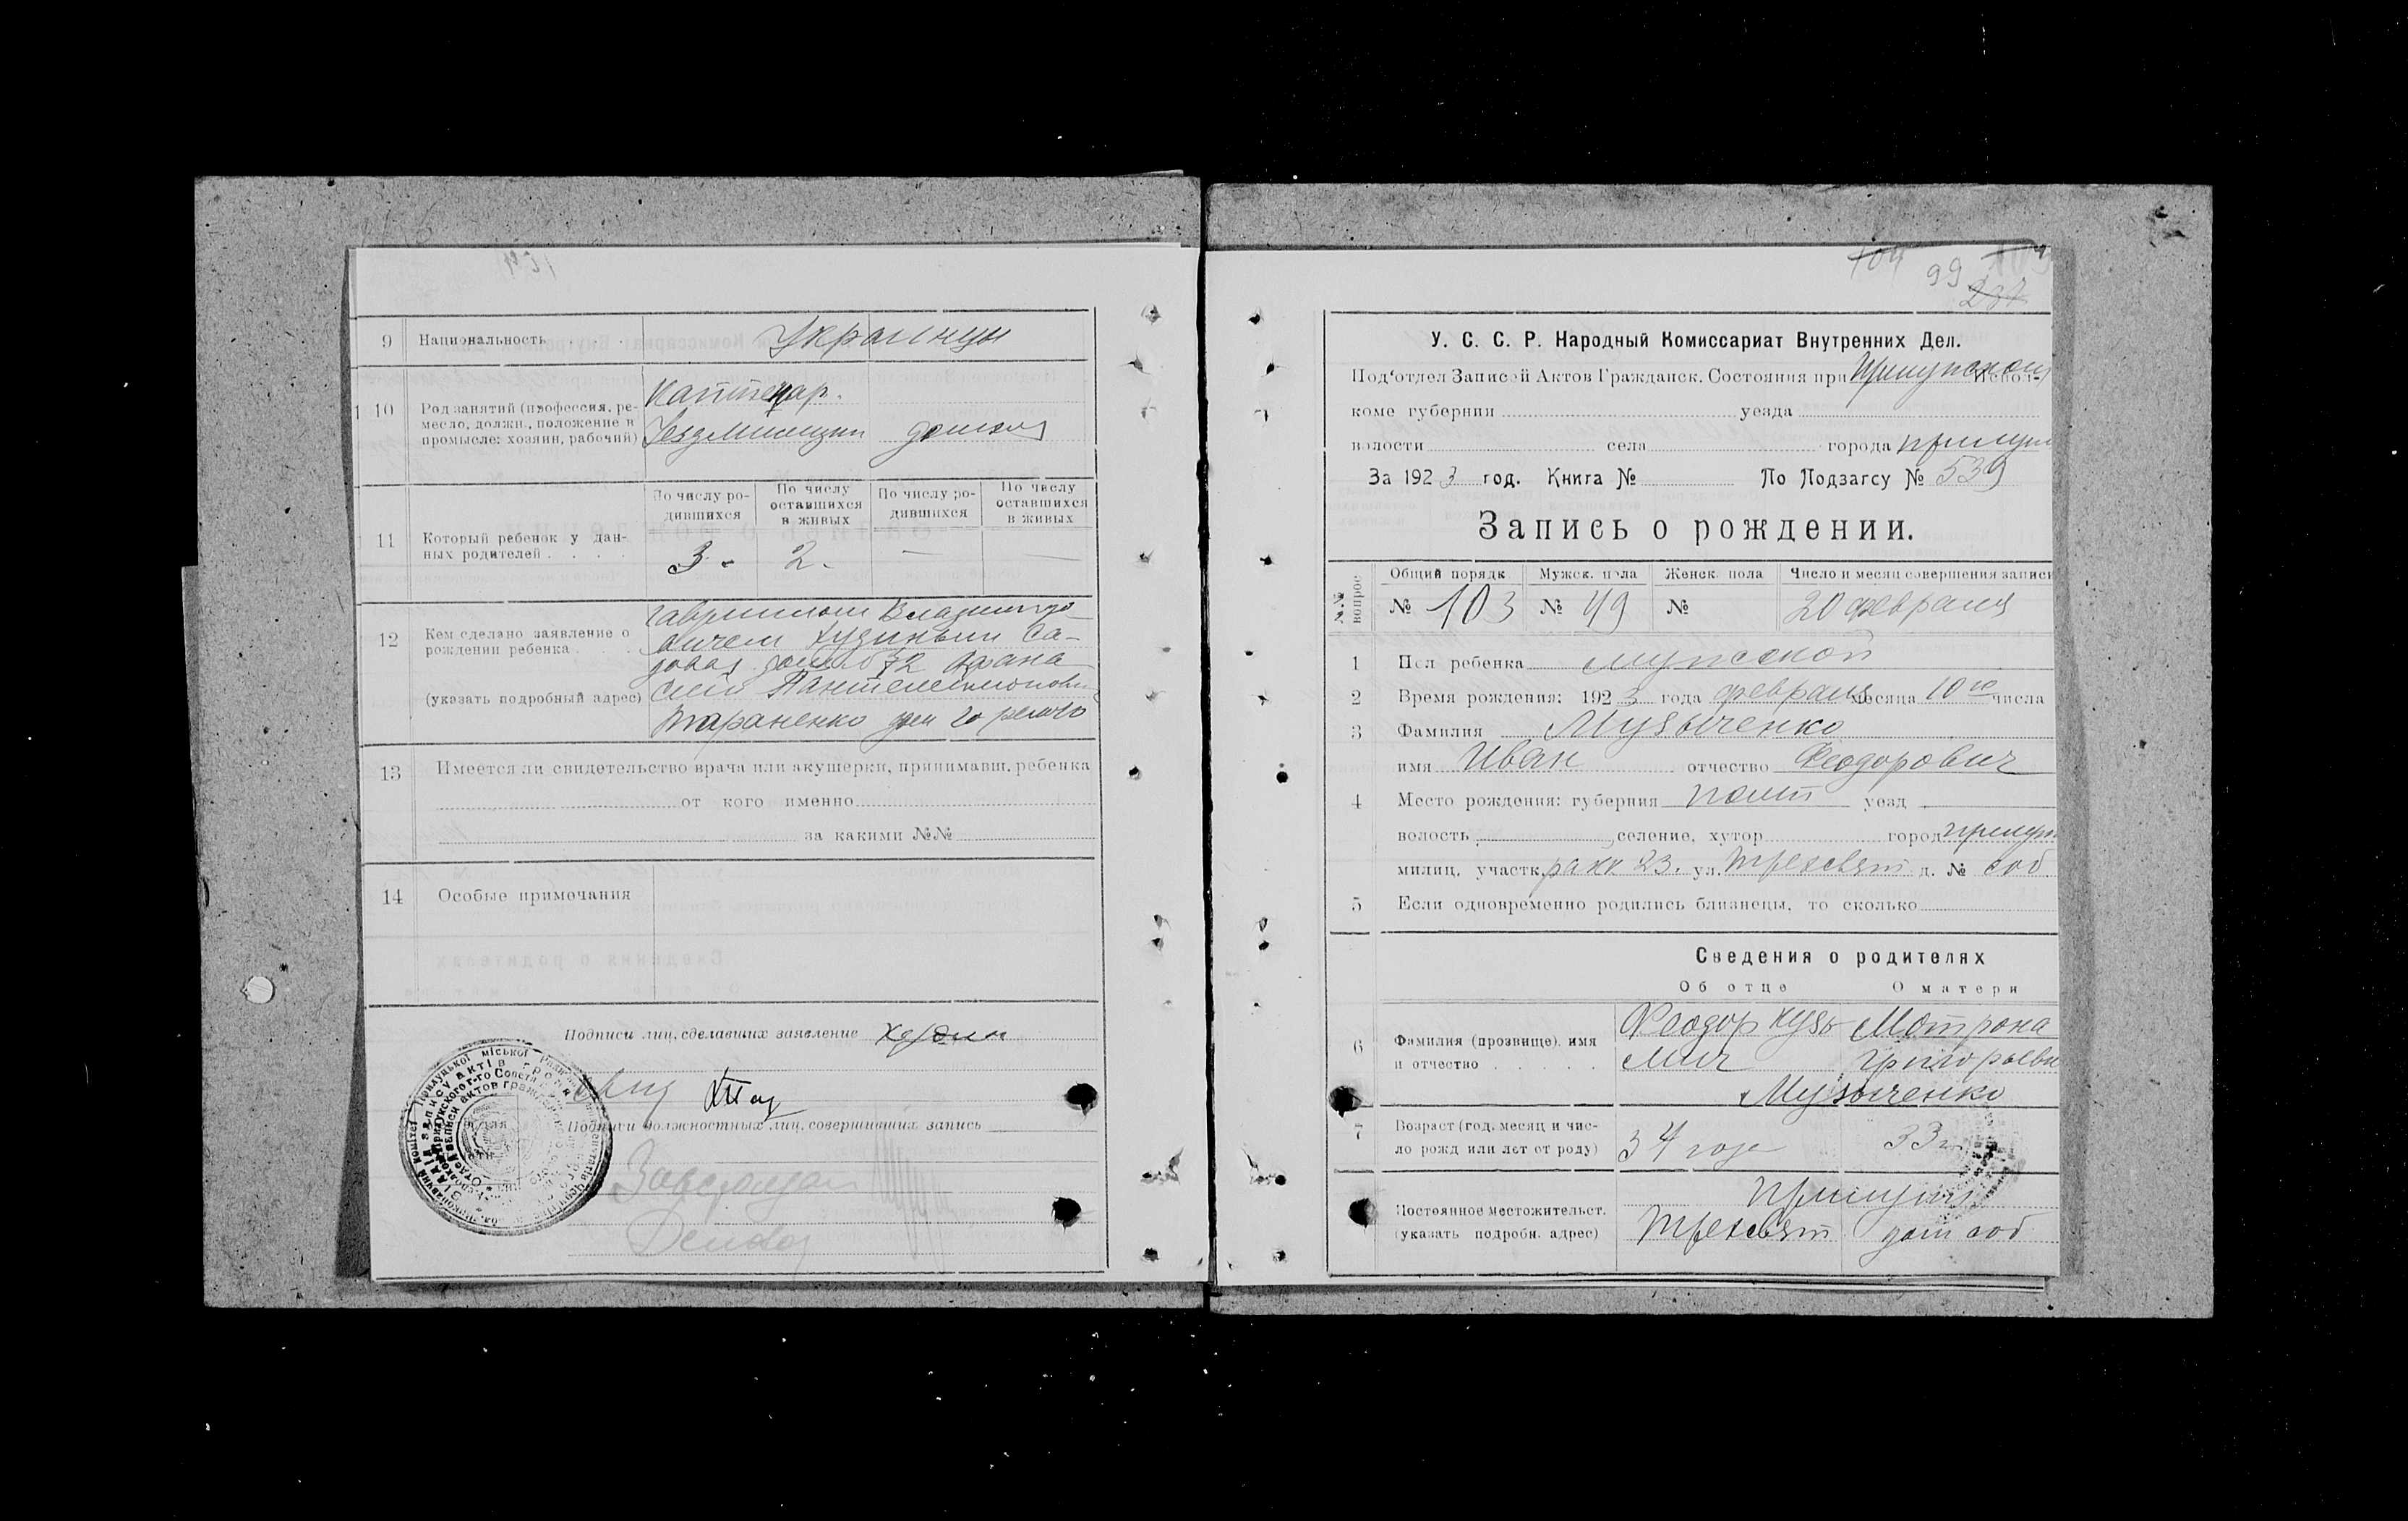 9 Национальность . . . Украинцы
10 Род занятий (профессия, ре-
месло, должн., положение в
промысле: хозяин, рабочий)
Канцеляр.
Уездмилиции домохоз
11 Который ребенок у дан-
ных родителей . . . .
По числу ро-
дившихся
По числу
оставшихся
в живых
По числу ро-
дившихся
По числу
оставшихся
в живых
3 - 2 - — —
12 Кем сделано заявление о
рождении ребенка . . .
(указать подробный адрес)
Гавриилом Владимиро
вичем Са-
довая дом № 72 Афана
сием Пантелеймонови
Тараненко дом
13 Имеется ли свидетельство врача или акушерки, принимавш. ребенка
от кого именно
за какими №№
14 Особые примечания
Подписи лиц, сделавших заявление
Подписи должностных лиц, совершивших запись
104 99
237
У. С. С. Р. Народный Комиссариат Внутренних Дел.
Под'отдел Записей Актов Гражданск. Состояния при Прилукском Испол-
коме губернии уезда
волости села города Прилуки
За 1923 год. Книга № По Подзагсу № 539
Запись о рождении.
№№ вопрос
Общий порядк Мужск. пола Женск. пола Число и месяц совершения записи
№ 103 № 49 № 20 февраля
1 Пол ребенка мужской
2 Время рождения: 1923 года февраля месяца 10го числа
3 Фамилия Музыченко
имя Иван отчество Феодорович
4 Место рождения: губерния Полт уезд
волость селение, хутор город Прилуки
милиц. участк. район 23. ул. Трехсвят д. № соб.
5 Если одновременно родились близнецы, то сколько
Сведения о родителях
Об отце О матери
6 Фамилия (прозвище), имя
и отчество . . . . .
Феодор Кузь Мотрона
мич Григорьевн
Музыченко
7 Возраст (год, месяц и чис-
ло рожд или лет от роду)
34 года 33 г
Постоянное местожительст.
(указать подробн. адрес)
Прилуки
Трехсвят дом соб